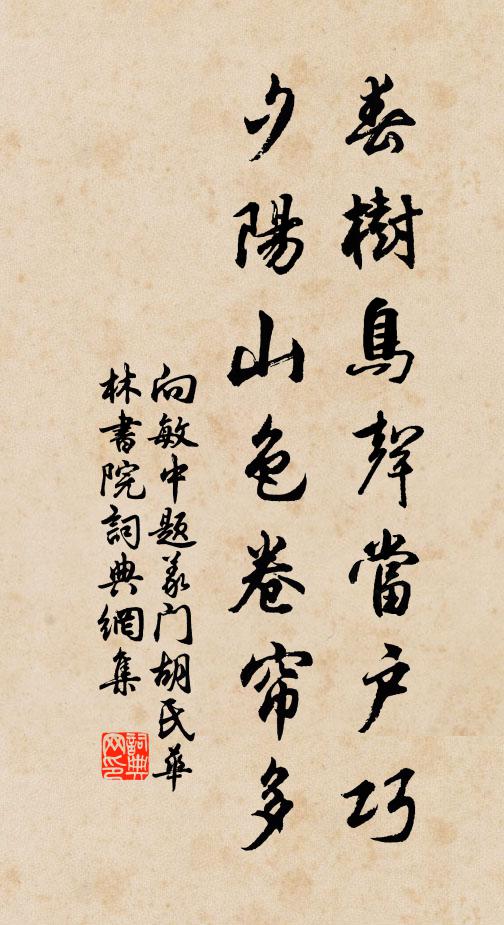 春樹鳥聲當户巧
夕陽山色卷帘多
向敏中題义门胡氏華
林書院詞典網集
詞典網印